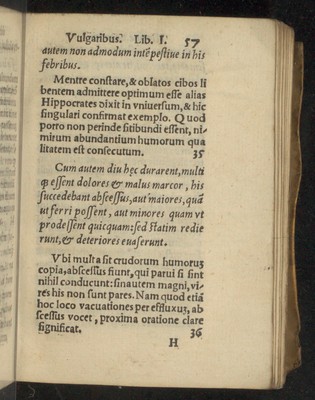 Vulgaribus. Lib. I. 57
autem non admodum intẽpestiue in his
febribus.
Mentre constare, & oblatos cibos li
bentem admittere optimum esse alias
Hippocrates dixit in vniuersum, & hic
singulari confirmat exemplo. Quod
porro non perinde sitibundi essent, ni-
mirum abundantium humorum qua
litatem est consecutum. 35
Cum autem diu hęc durarent, multi
q3 essent dolores & malus marcor, his
succedebant abscessus, aut maiores, quã
ut ferri possent, aut minores quam vt
prodessent quicquam: sed statim redie
runt, & deteriores euaserunt.
Vbi multa sit crudorum humorum
copia, abscessus fiunt, qui parui si sint
nihil conducunt: sin autem magni, vi-
res his non sunt pares. Nam quod etiã
hoc loco vacuationes per effluxum, ab
scessus vocet, proxima oratione clare
significat. 36
H